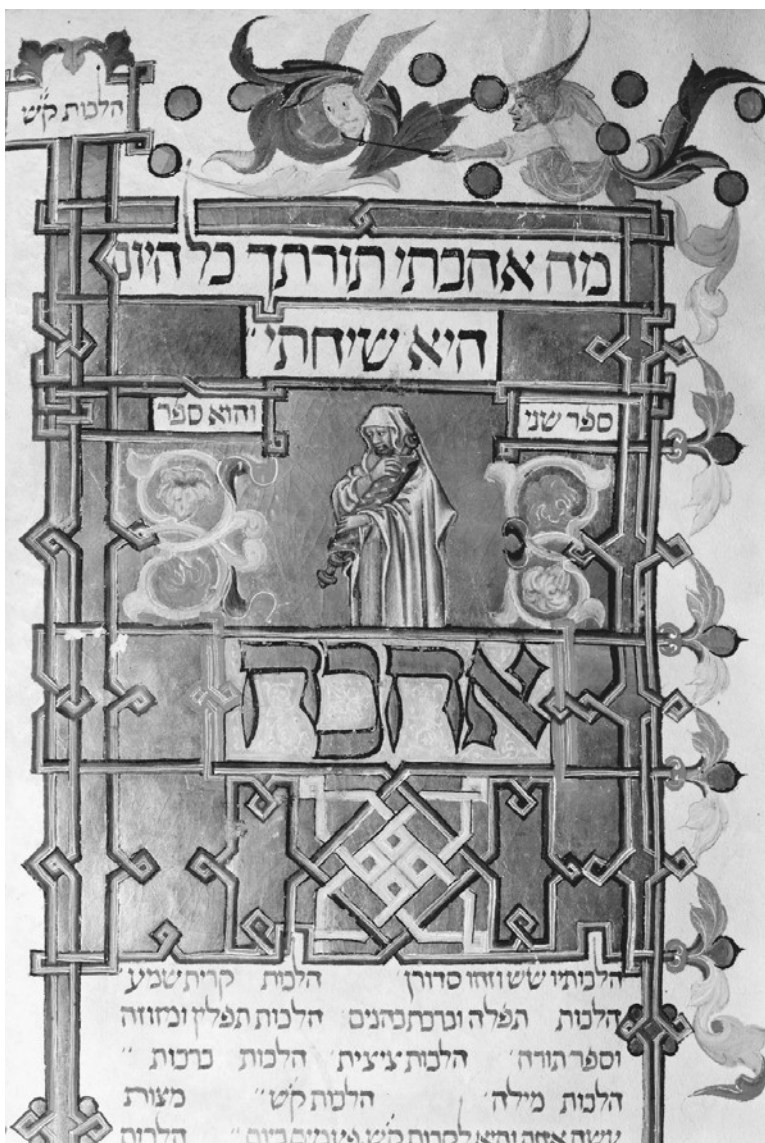 הלכות ק״ש
מה אהבתי תורתך כל היום
היא שיחתי״
ספר שני והוא ספר
אהבה
הלכותיו שש וזהו סדורן׳ הלכות קרית שמע״
הלכות תפלה וברכת כהנים הלכות תפלין ומזוזה
וספר תורה׳ הלכות ציצית׳ הלכות ברכות״
הלכות מילה׳ הלכות ק״ש״ מצות
עשה אחת והיא לקרות ק״ש פעמים ביום״ הלכות